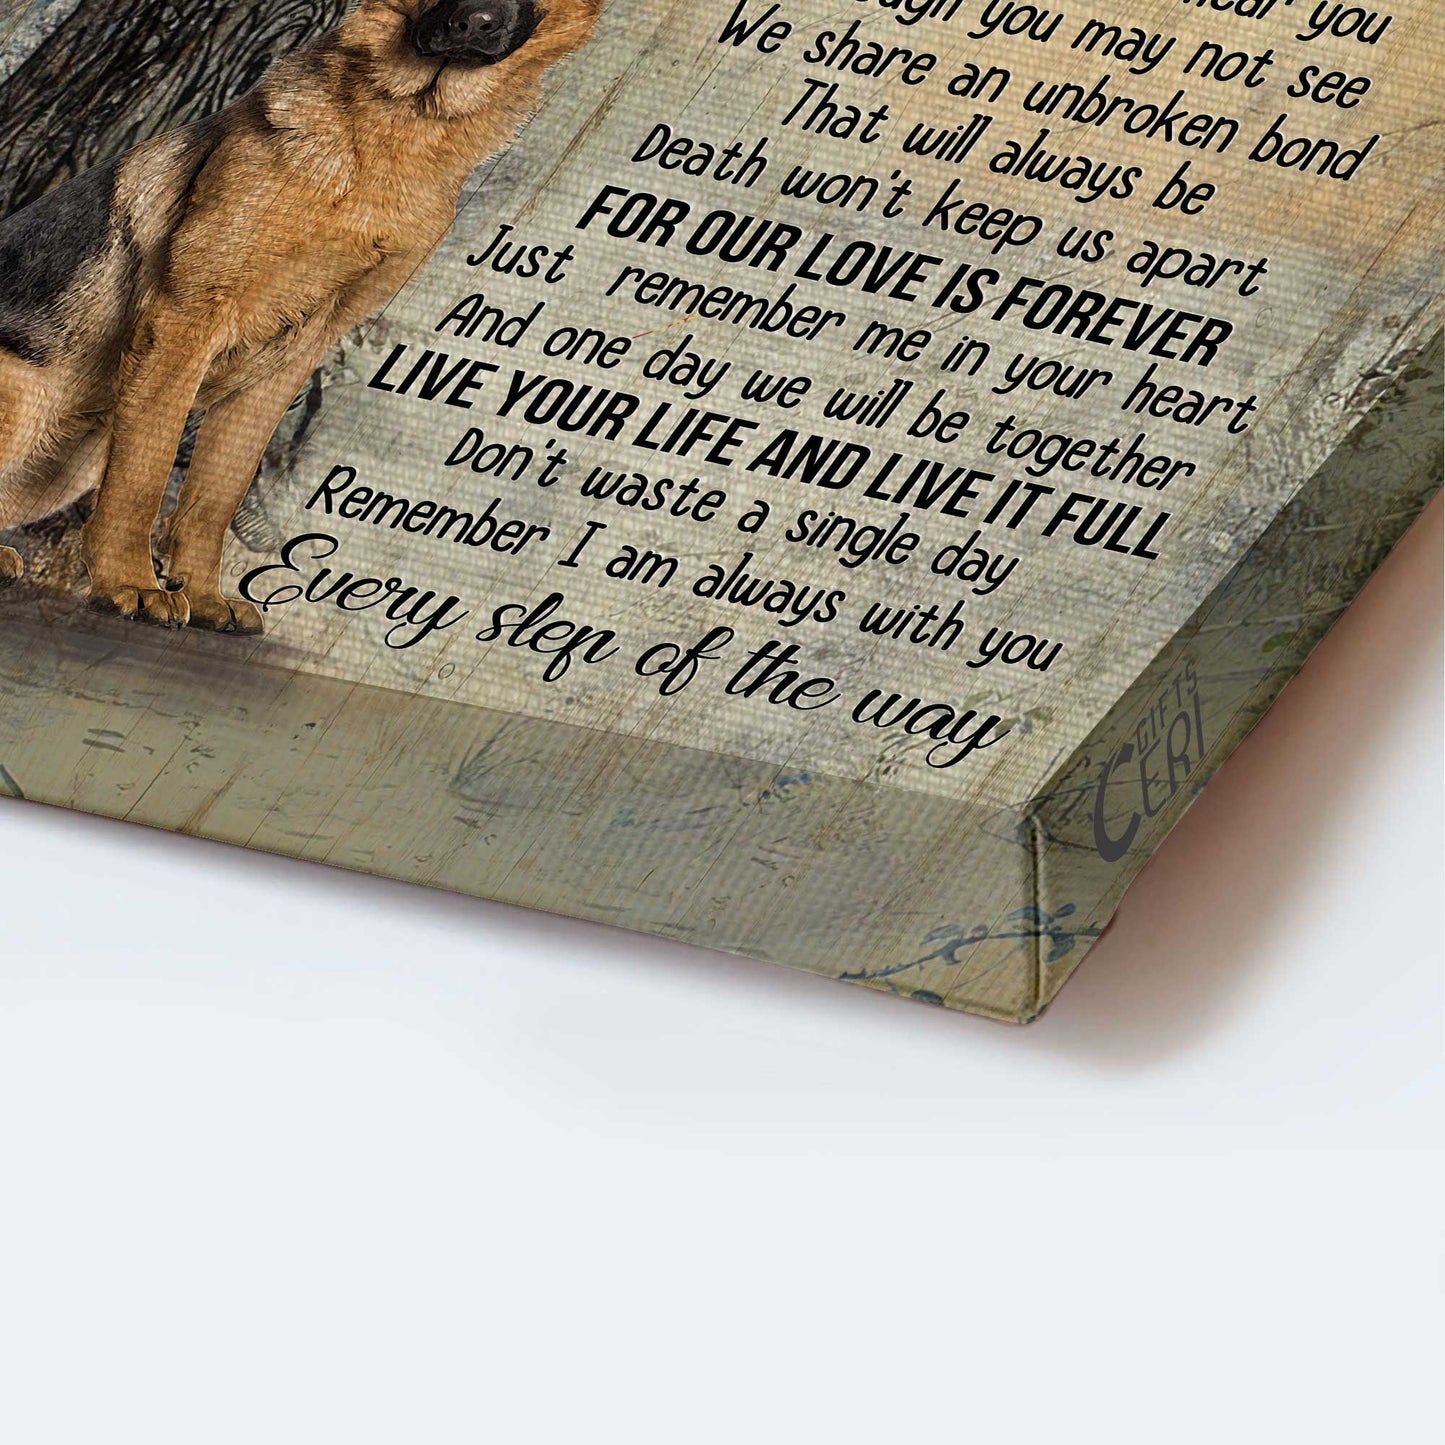 hear you
you may not see
We share an unbroken bond
That will always be
Death won't keep us apart
FOR OUR LOVE IS FOREVER
Just remember me in your heart
And one day we will be together
LIVE YOUR LIFE AND LIVE IT FULL
Don't waste a single day
Remember I am always with you
Every step of the way
GIFTS
CERI